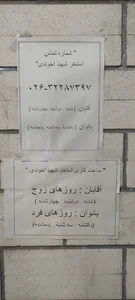 " شماره تماس "
استخر شهید اخوندی "
۰۲۶-۳۲۲۸۷۳۹۷
آقایان: (شنبه، دوشنبه، چهارشنبه)
بانوان: (یکشنبه، سه شنبه، پنجشنبه)
" ساعت کاری استخر شهید اخوندی "
آقایان : روزهای زوج
(شنبه دوشنبه چهارشنبه)
بانوان : روزهای فرد
(یکشنبه، سه شنبه، پنجشنبه)